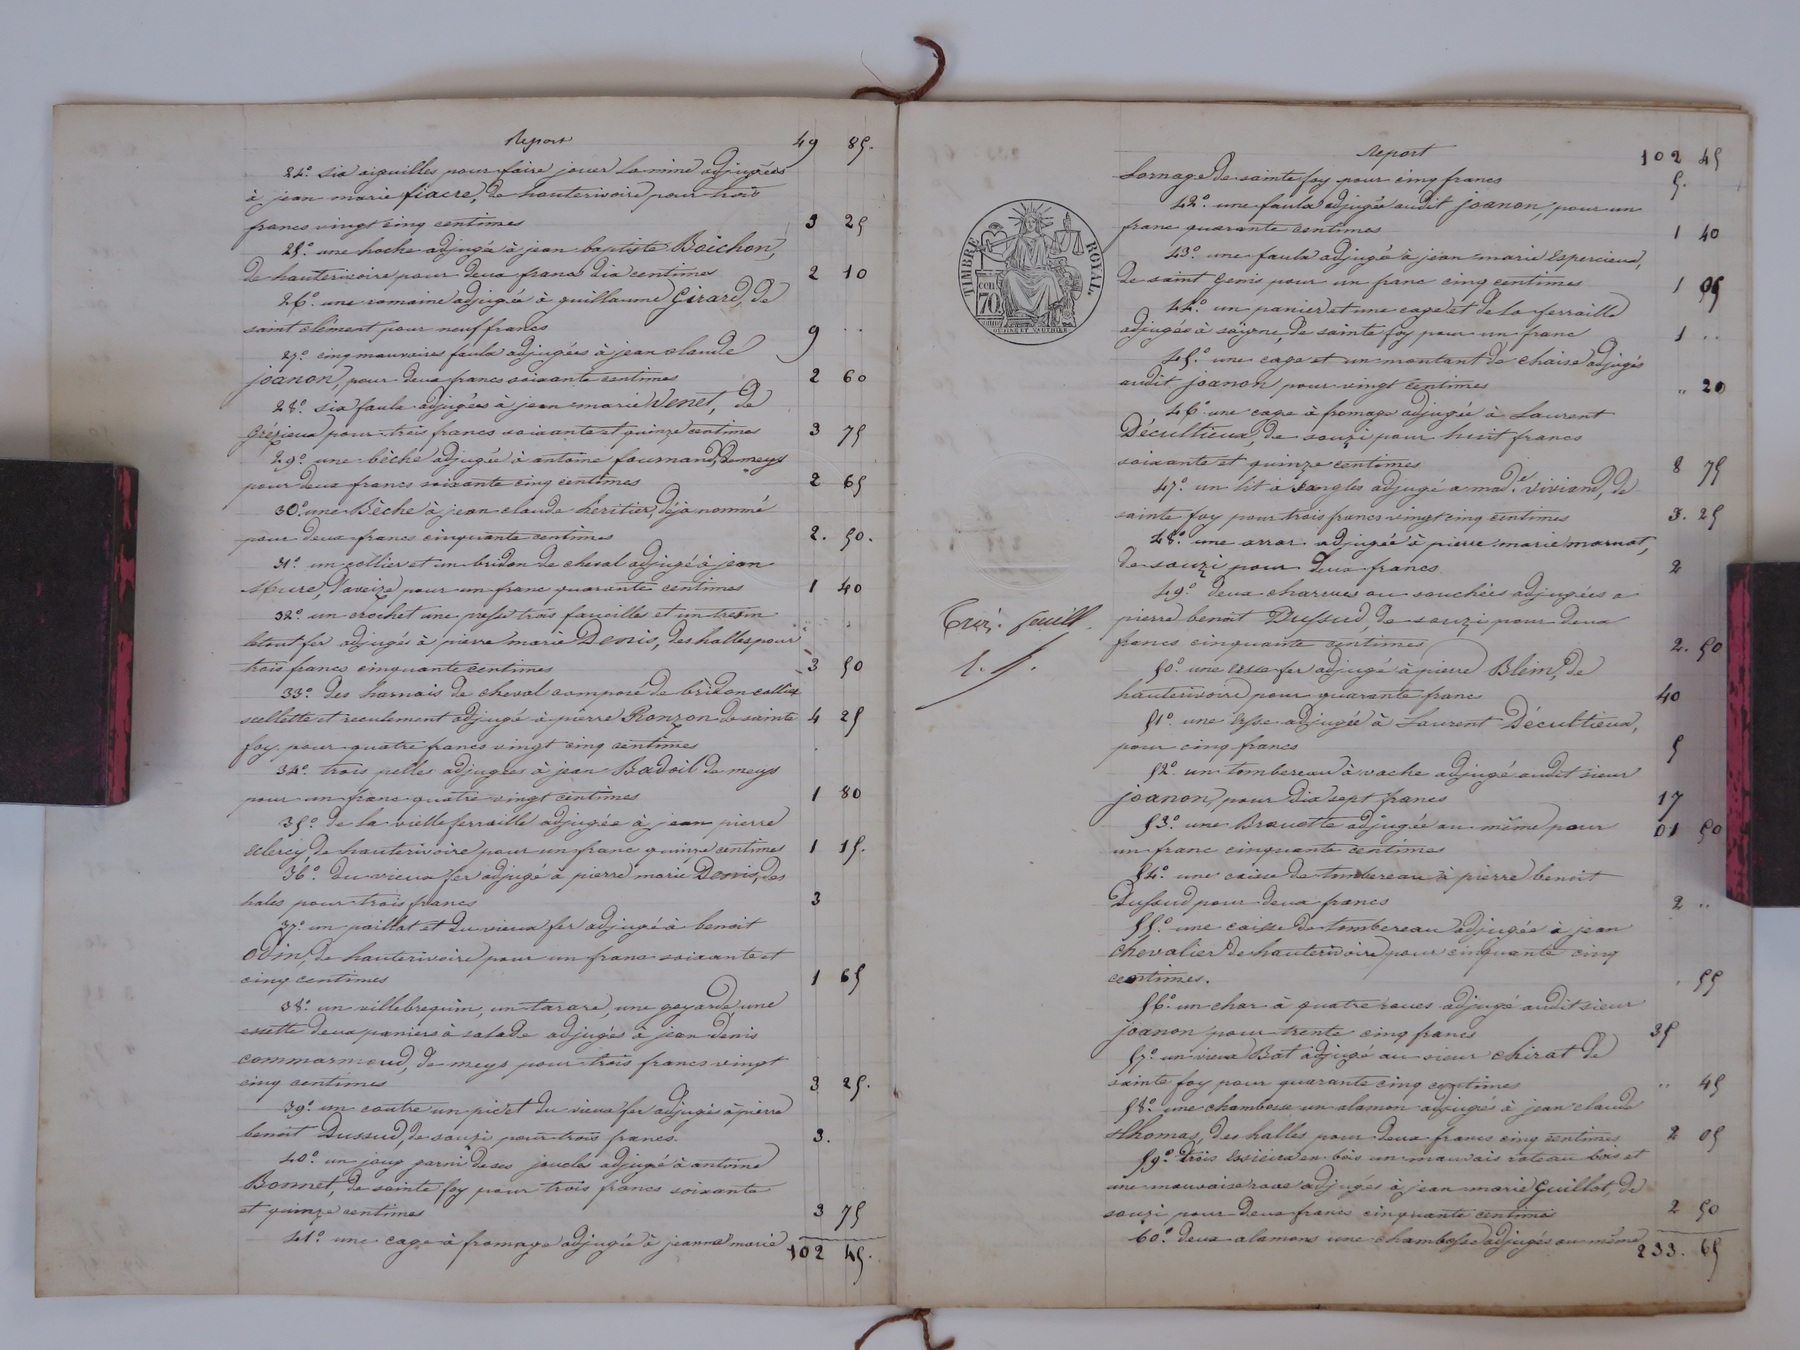 Report 49 85.
24.° six aiguilles pour faire jouer la mine adjugées
à jean marie fiacre, de hauterivoire pour trois
francs vingt cinq centimes 3 25
25.° une hache adjugée à jean baptiste Boichon,
de hauterivoire pour deux francs dix centimes 2 10
26.° une romaine adjugée à guillaume Girard, de
saint clément pour neuf francs 9 ..
27.° cinq mauvaises faulx adjugées à jean claude
joanon, pour deux francs soixante centimes 2 60
28.° six faulx adjugées à jean marie Venet, de
Grézieux pour trois francs soixante et quinze centimes 3 75
29.° une bêche adjugée à antoine fournand, de meys
pour deux francs soixante cinq centimes 2 65
30.° une Bêche à jean claude heritier, déja nommé
pour deux francs cinquante centimes 2. 50.
31.° un collier et un bridon de cheval adjugé à jean
Mure, d'aveize pour un franc quarante centimes 1 40
32.° un crochet une trois faucilles et un
le tout fer adjugés à pierre marie Denis, des halles pour
trois francs cinquante centimes 3 50
33.° des harnais de cheval composé de bridon collier
sellette et reculement adjugé à pierre Ronzon de sainte 4 25
foy, pour quatre francs vingt cinq centimes
34.° trois pelles adjugées à jean Badoil de meys
pour un franc quatre vingt centimes 1 80
35.° de la vielle ferraille adjugée à jean pierre
clercy de hauterivoire pour un franc quinze centimes 1 15.
36.° du vieux fer adjugé à pierre marie Denis, des
hales pour trois francs 3
37.° un paillat et du vieux fer adjugé à benoit
Odin, de hauterivoire pour un franc soixante et
cinq centimes 1 65
38.° un villebrequin, un tarare, une goyarde, une
essette deux paniers à salade adjugés à jean denis
commarmoud, de meys pour trois francs vingt
cinq centimes 3 25.
39.° un coutre un pic et du vieux fer adjugés à pierre
benoit Dussud, de souzi pour trois francs. 3.
40.° un joug garni de ses joucles adjugé à antoine
Bonnet, de sainte foy pour trois francs soixante
et quinze centimes 3 75
41.° une cage à fromage adjugée à jeanne marie
102 45.
Report 102 45
Lornage de sainte foy pour cinq francs 5.
42.° une faulx adjugée audit joanon, pour un
franc quarante centimes 1 40
43.° une faulx adjugé à jean marie Espercieux,
de saint Genis pour un franc cinq centimes 1 05
44.° un panier et une cage et de la ferraille
adjugés à de sainte foy pour un franc 1 ..
45.° une cage et un montant de chaise adjugés
audit joanon pour vingt centimes .. 20
46.° une cage à fromage adjugée à Laurent
Décultieux, de souzi pour huit francs
soixante et quinze centimes 8 75
47.° un lit à sangles adjugé a mad.e Viviand, de
sainte foy pour trois francs vingt cinq centimes 3. 25
48.° une arrar adjugée à pierre marie mornat,
de souzi pour deux francs 2
49.° deux charrues ou souchées adjugées a
pierre benoit Dussud, de souzi pour deux
francs cinquante centimes 2. 50
50.° une esse fer adjugé à pierre Blein, de
hauterivoire pour quarante francs 40
51.° une esse adjugée à Laurent Décultieux,
pour cinq francs 5
52.° un tombereau à vache adjugé audit sieur
joanon, pour dix sept francs 17
53.° une Brouette adjugée au même pour 01 50
un franc cinquante centimes
54.° une caisse de tombereau à pierre benoit
Dussud pour deux francs 2 ..
55.° une caisse de tombereau adjugée à jean
chevalier de hauterivoire pour cinquante cinq
centimes. 55
56.° un char à quatre roues adjugé audit sieur
joanon pour trente cinq francs 35
57.° un vieux Bat adjugé au sieur chirat de
sainte foy pour quarante cinq centimes .. 45
58.° une chambosse un alamon adjugés à jean claude
thomas, des halles pour deux francs cinq centimes 2 05
59.° trois essieux en bois un mauvais rateau bois et
une mauvaise roue adjugés à jean marie Guillot, de
souzi pour deux francs cinquante centimes 2 50
60.° deux alamons une chambosse adjugés au même
233. 65
TIMBRE ROYAL.
cen
70
feuill.